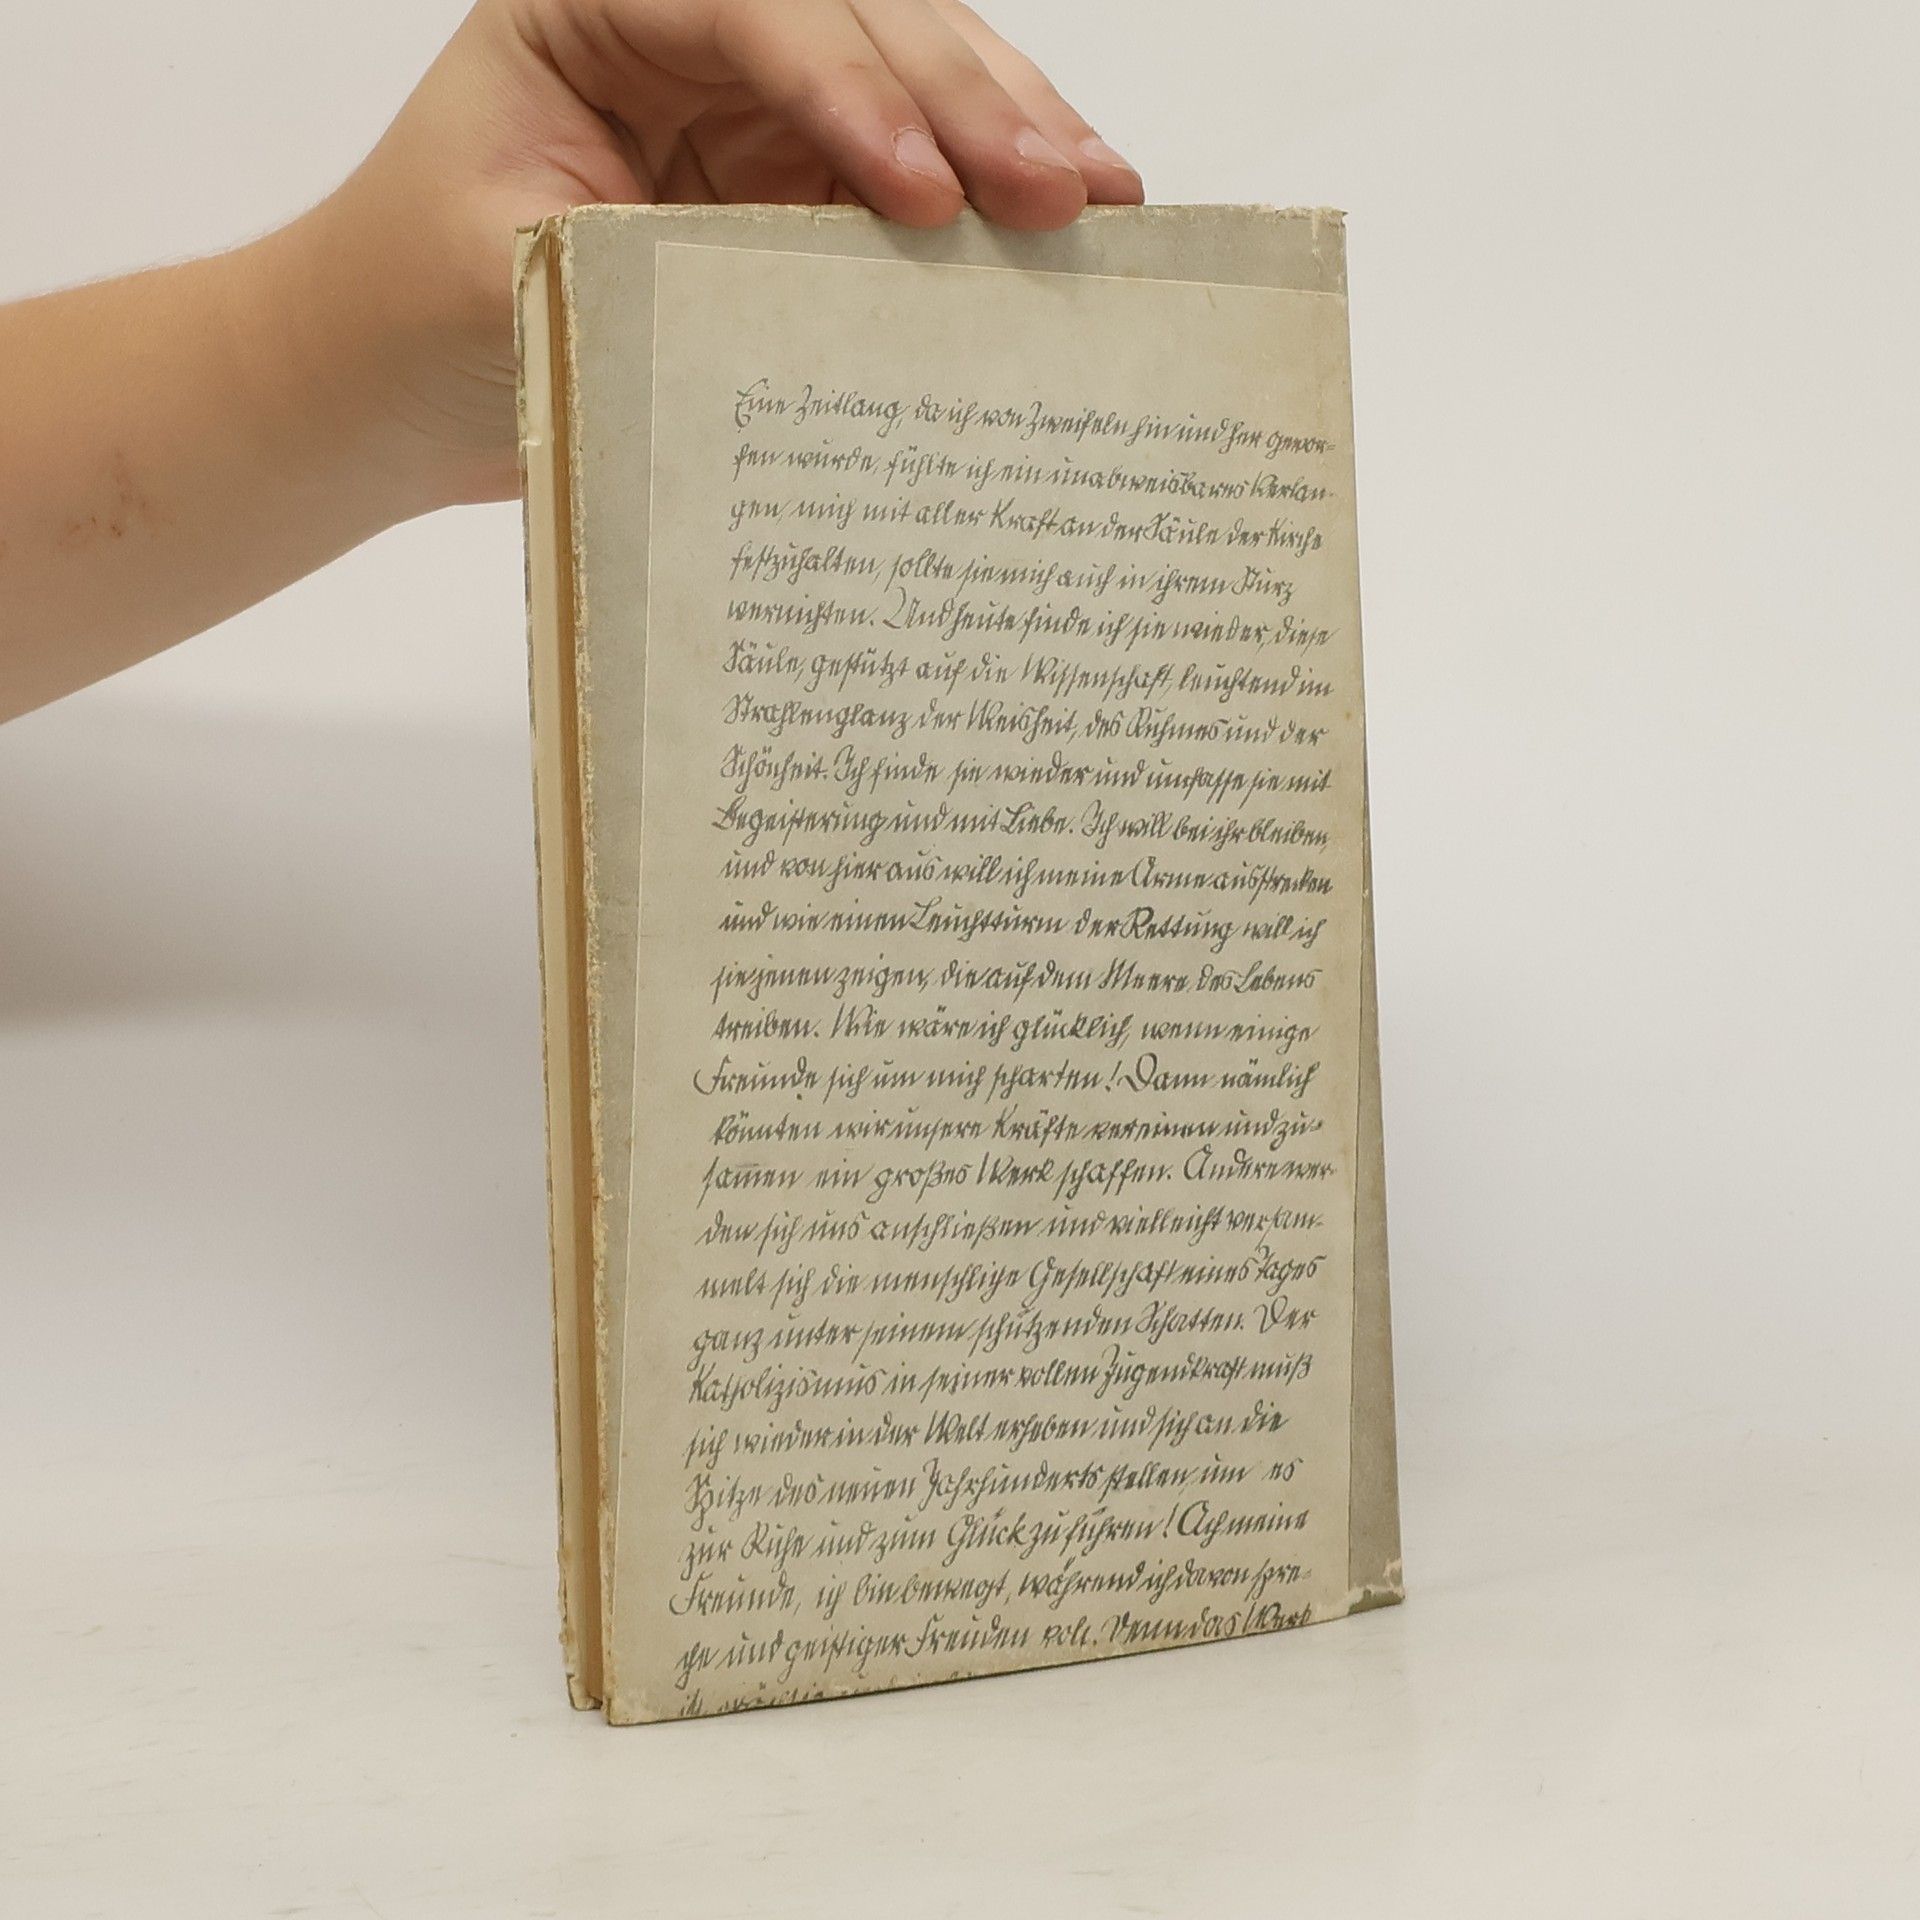 Eine Zeitlang, da ich von Zweifeln hin und her gewor-
fen wurde, fühlte ich ein unabweisbares Verlan-
gen, mich mit aller Kraft an der Säule der Kirche
festzuhalten, sollte sie mich auch in ihrem Sturz
vernichten. Und heute finde ich sie wieder, diese
Säule, gestützt auf die Wissenschaft, leuchtend im
Strahlenglanz der Weisheit, des Ruhmes und der
Schönheit. Ich finde sie wieder und umfasse sie mit
Begeisterung und mit Liebe. Ich will bei ihr bleiben,
und von hier aus will ich meine Arme ausstrecken
und wie einen Leuchtturm der Rettung will ich
sie jenen zeigen, die auf dem Meere des Lebens
treiben. Wie wäre ich glücklich, wenn einige
Freunde sich um mich scharten! Dann nämlich
könnten wir unsere Kräfte vereinen und zu-
sam̅en ein großes Werk schaffen. Andere wer-
den sich uns anschließen und vielleicht versam-
melt sich die menschliche Gesellschaft eines Tages
ganz unter seinem schützenden Schatten. Der
Katholizismus in seiner vollen Jugendkraft muß
sich wieder in der Welt erheben und sich an die
Spitze des neuen Jahrhunderts stellen, um es
zur Ruhe und zum Glück zu führen! Ach meine
Freunde, ich bin bewegt, während ich davon spre-
che und geistiger Freuden voll. Denn das Werk